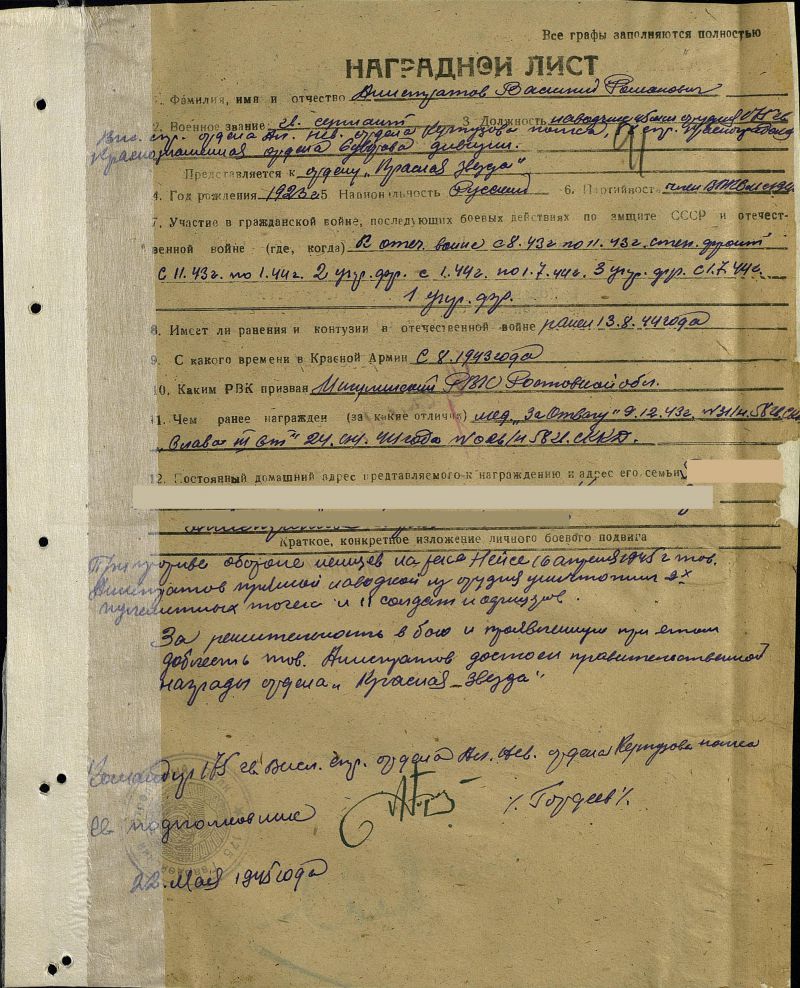 Все графы заполняются полностью
НАГРАДНОЙ ЛИСТ
1. Фамилия, имя и отчество Анистратов Василий Романович
2. Военное звание гв. сержант 3 Должность наводчик орудия 175 гв
Висл. стр. ордена Ал. Нев. ордена Кутузова полка, стр.
Краснознаменная ордена Суворова дивизии.
Представляется к ордену „Красная Звезда"
4. Год рождения 1923г 5 Национальность Русский 6. Партийность член ВЛКСМ
7. Участие в гражданской войне, последующих боевых действиях по защите СССР и отечест-
венной войне (где, когда) В отеч. войне с 8.43г. по 11.43г. степ. фронт
с 11.43г. по 1.44г. 2 укр. фр. с 1.44г. по 1.7.44г. 3 укр. фр. с 1.7.44г.
1 укр. фр.
8. Имеет ли ранения и контузии в отечественной войне ранен 13.8.44 года
9. С какого времени в Красной Армии С 8.1943 года
10. Каким РВК призван Мигулинский РВК Ростовской обл.
11. Чем ранее награжден (за какие отличия) мед. „За Отвагу" 9.12.43г. №31/н 58
„Слава III ст" 24.04.44 года №026/н 58
12. Постоянный домашний адрес предтавляемого к награждению и адрес его семьи
Краткое, конкретное изложение личного боевого подвига
При прорыве обороне немцев на реке Нейсе 16 апреля 1945г тов.
Анистратов прямой наводкой из орудия уничтожил 2х
пулеметных точек и 11 солдат и офицеров.
За решительность в бою и проявленную при этом
доблесть тов. Анистратов достоен правительственной
награды ордена „Красная Звезда"
Командир 175 гв. Висл. стр. ордена Ал. Нев. ордена Кутузова полка
гв подполковник /Гордеев/.
22. Мая 1945 года